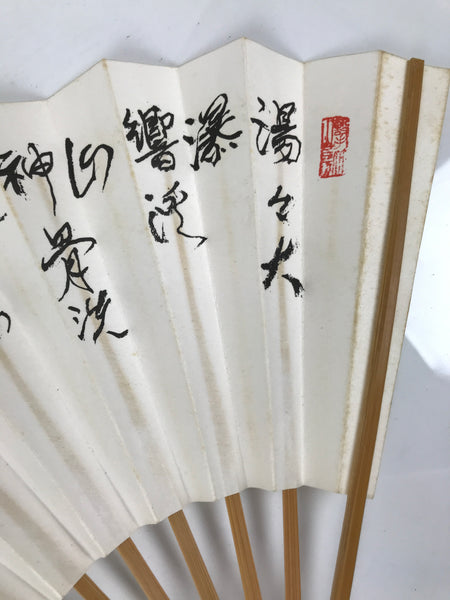 湯々大
瀑
響渓
山
骨洗
神